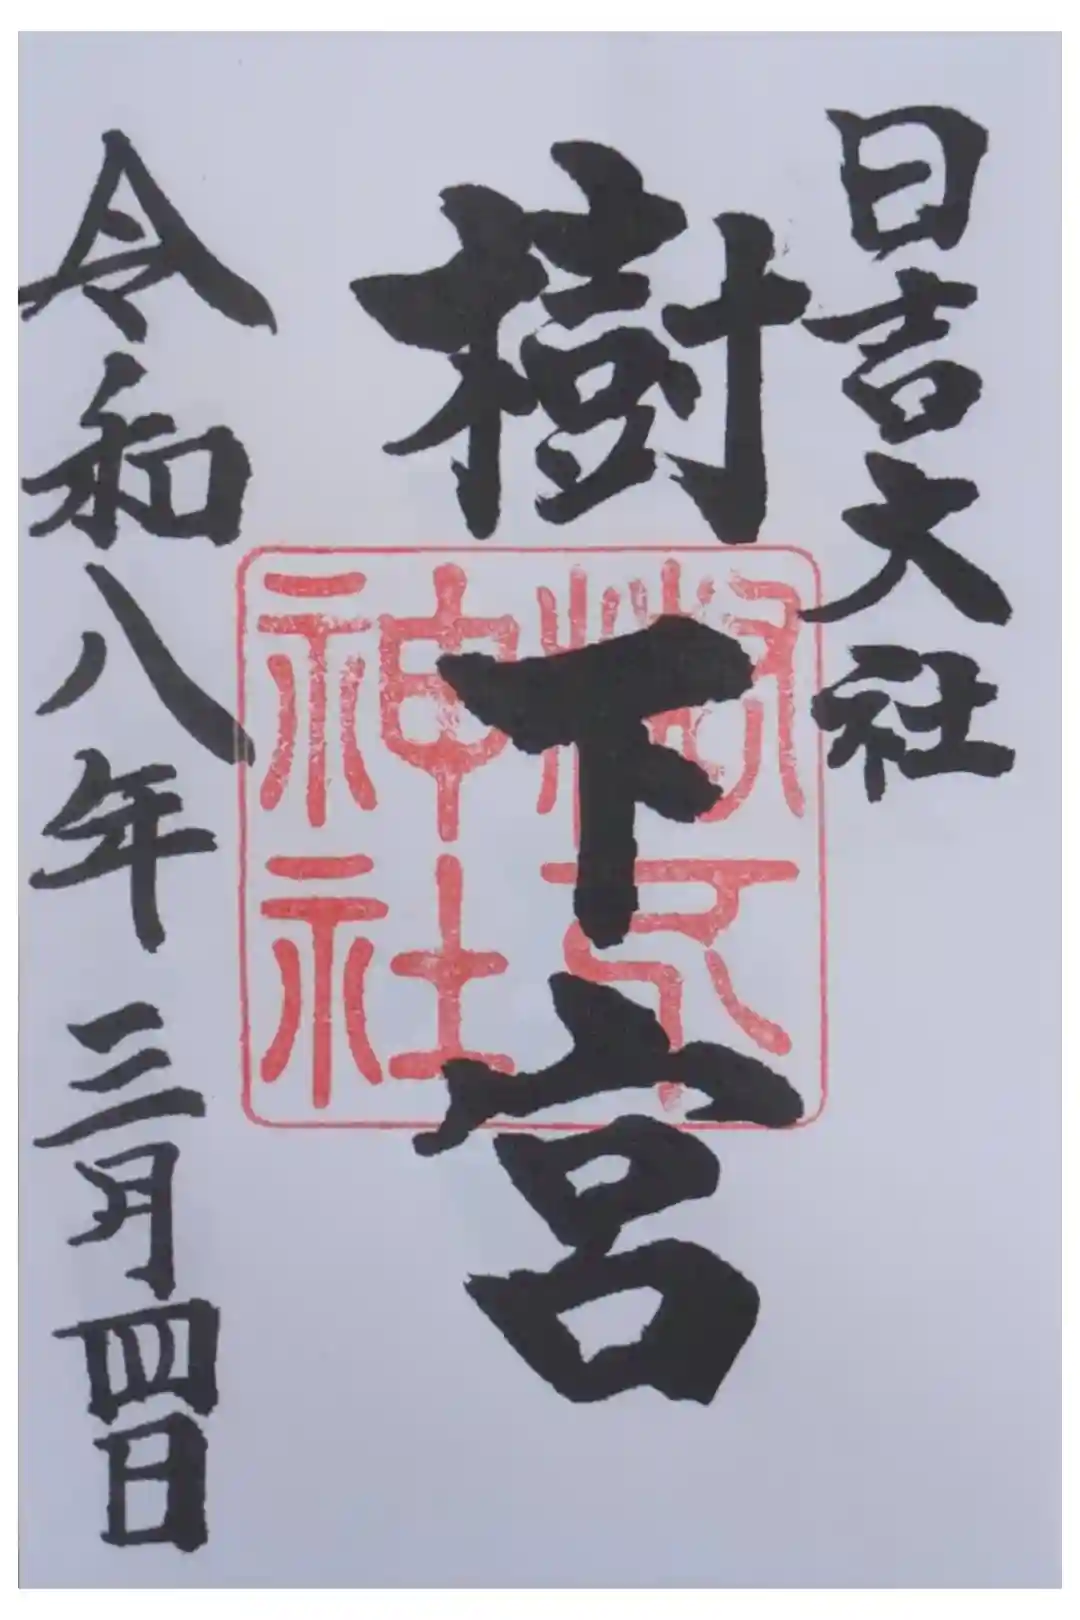 日吉大社
樹下宮
令和八年三月四日
樹下神社